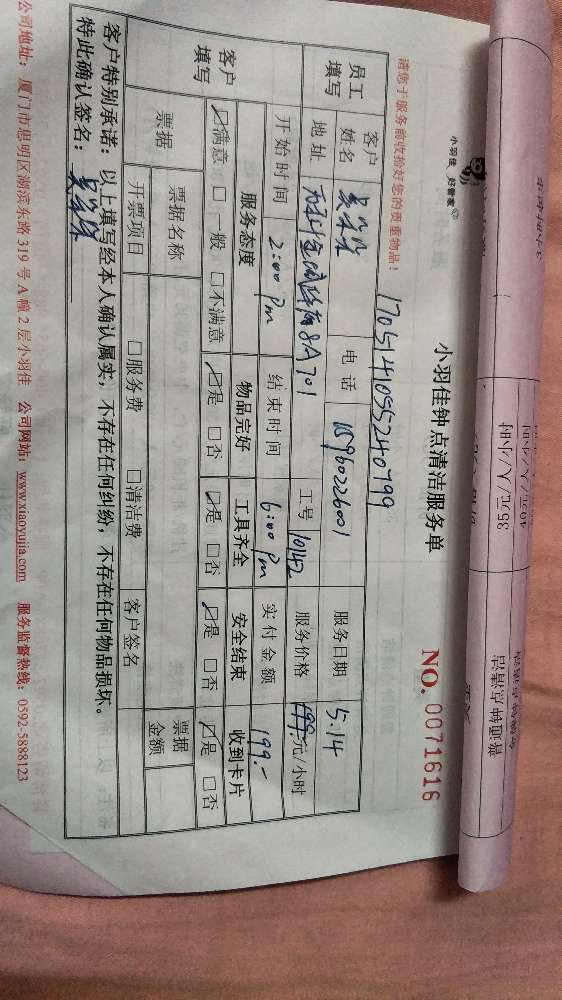 小羽佳 好管家
小羽佳钟点清洁服务单
NO. 0071616
请您于服务前收拾好您的贵重物品!
1705141055240799
员工填写
客户姓名
电话
服务日期 5.14
地址
8A701
工号 10142
服务价格 199元/小时
客户填写
开始时间 2:00 pm
结束时间 6:00 pm
实付金额 199.-
服务态度 物品完好 工具齐全 安全结束 收到卡片
☑满意 □一般 □不满意 ☑是 □否 ☑是 □否 ☑是 □否 ☑是 □否
票据
票据名称
票据金额
开票项目 □服务费 □清洁费 客户签名
客户特别承诺:以上填写经本人确认属实,不存在任何纠纷,不存在任何物品损坏。
特此确认签名:
公司地址:厦门市思明区湖滨东路 319 号 A 幢 2 层小羽佳 公司网站:www.xiaoyujia.com 服务监督热线:0592-5888123